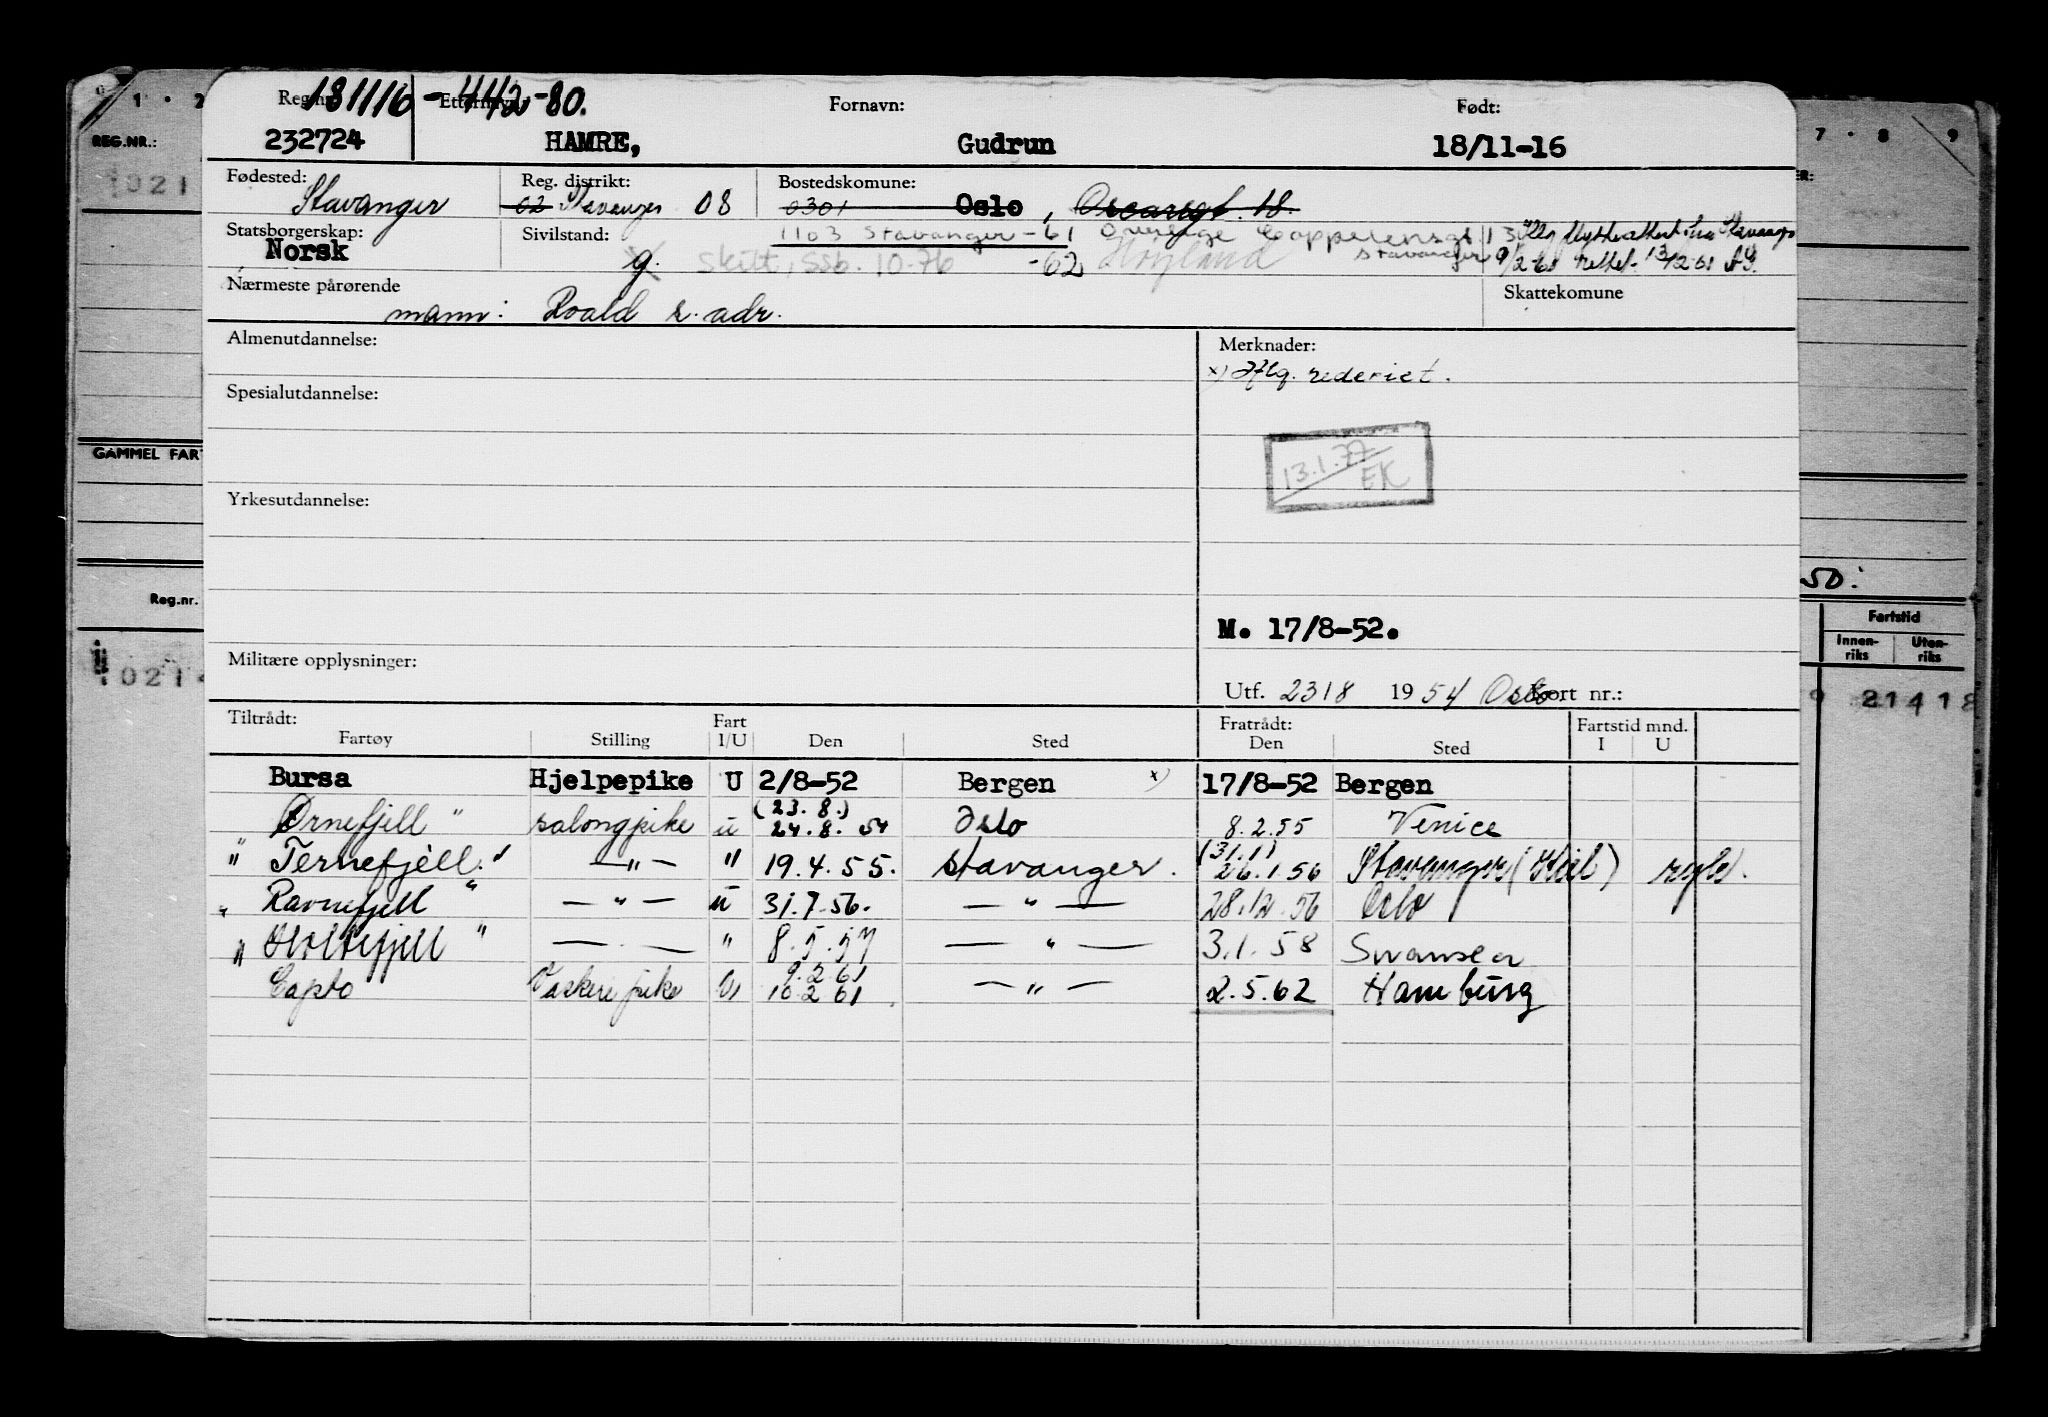 181116-442-80.
Reg.nr. Etternavn: Fornavn: Født:
232724 HAMRE, Gudrun 18/11-16
Fødested: Stavanger Reg. distrikt: 02 Stavanger 08 Bostedskomune: 0301 Oslo, Oscarsgt. 18.
Statsborgerskap: Norsk Sivilstand: g. 1103 Stavanger -61 Cappelensgt 13 Stavanger
skilt, SSB. 10-76 -62 Høyland
9/2-61 13/2-61
Nærmeste pårørende Skattekomune
mann: Roald s. adr.
Almenutdannelse: Merknader:
x) Iflg. rederiet.
Spesialutdannelse:
13.1.77
EK
Yrkesutdannelse:
M. 17/8-52.
Militære opplysninger:
Utf. 2318 1954 Oslo Kort nr.:
Tiltrådt: Fratrådt: Fartstid mnd.
Fartøy Stilling Fart I/U Den Sted Den Sted I U
Bursa Hjelpepike U 2/8-52 Bergen x) 17/8-52 Bergen
Ørnefjell " salongpike u (23.8.) 24.8.54 Oslo 8.2.55 Venice
" Ternefjell " — " — " 19.4.55. Stavanger. (31.1) 26.1.56 Stavanger (Kiel)
" Ravnefjell " — " — u 31.7.56. — " — 28.12.56 Oslo
" " — " — " 8.5.57 — " — 3.1.58 Swansea
Capto Vaskeripike U 9.2.61 10.2.61 — " — 2.5.62 Hamburg
1 · 2
REG.NR.:
1021
GAMMEL FART
Reg.nr.
10214
7 · 8 9
50:
Fartstid
Innen-riks Uten-riks
9 21418